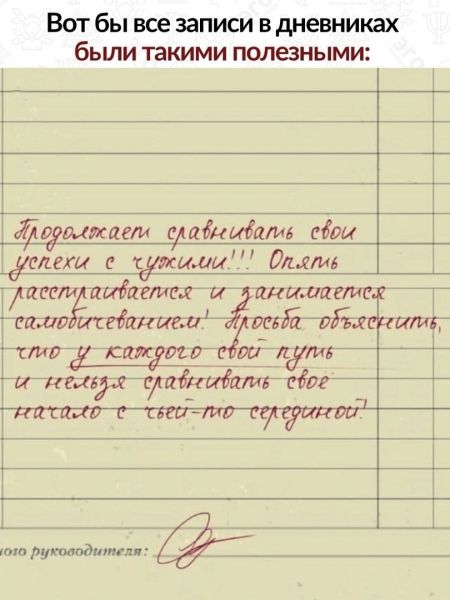 Вот бы все записи в дневниках
были такими полезными:
Продолжает сравнивать свои
успехи с чужими!!! Опять
расстраивается и занимается
самобичеванием! Просьба объяснить,
что у каждого свой путь
и нельзя сравнивать своё
начало с чьей-то серединой!
ого руководителя: